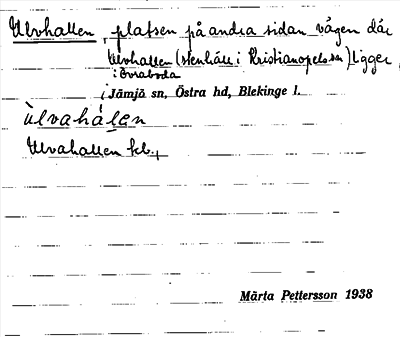 Ulvhallen, platsen på andra sidan vägen där
Ulvhallen (stenhäll i Kristianopels sn) ligger,
i Övraboda
Jämjö sn, Östra hd, Blekinge l.
ùlvahálen
Ulvahallen kb.,
Märta Pettersson 1938